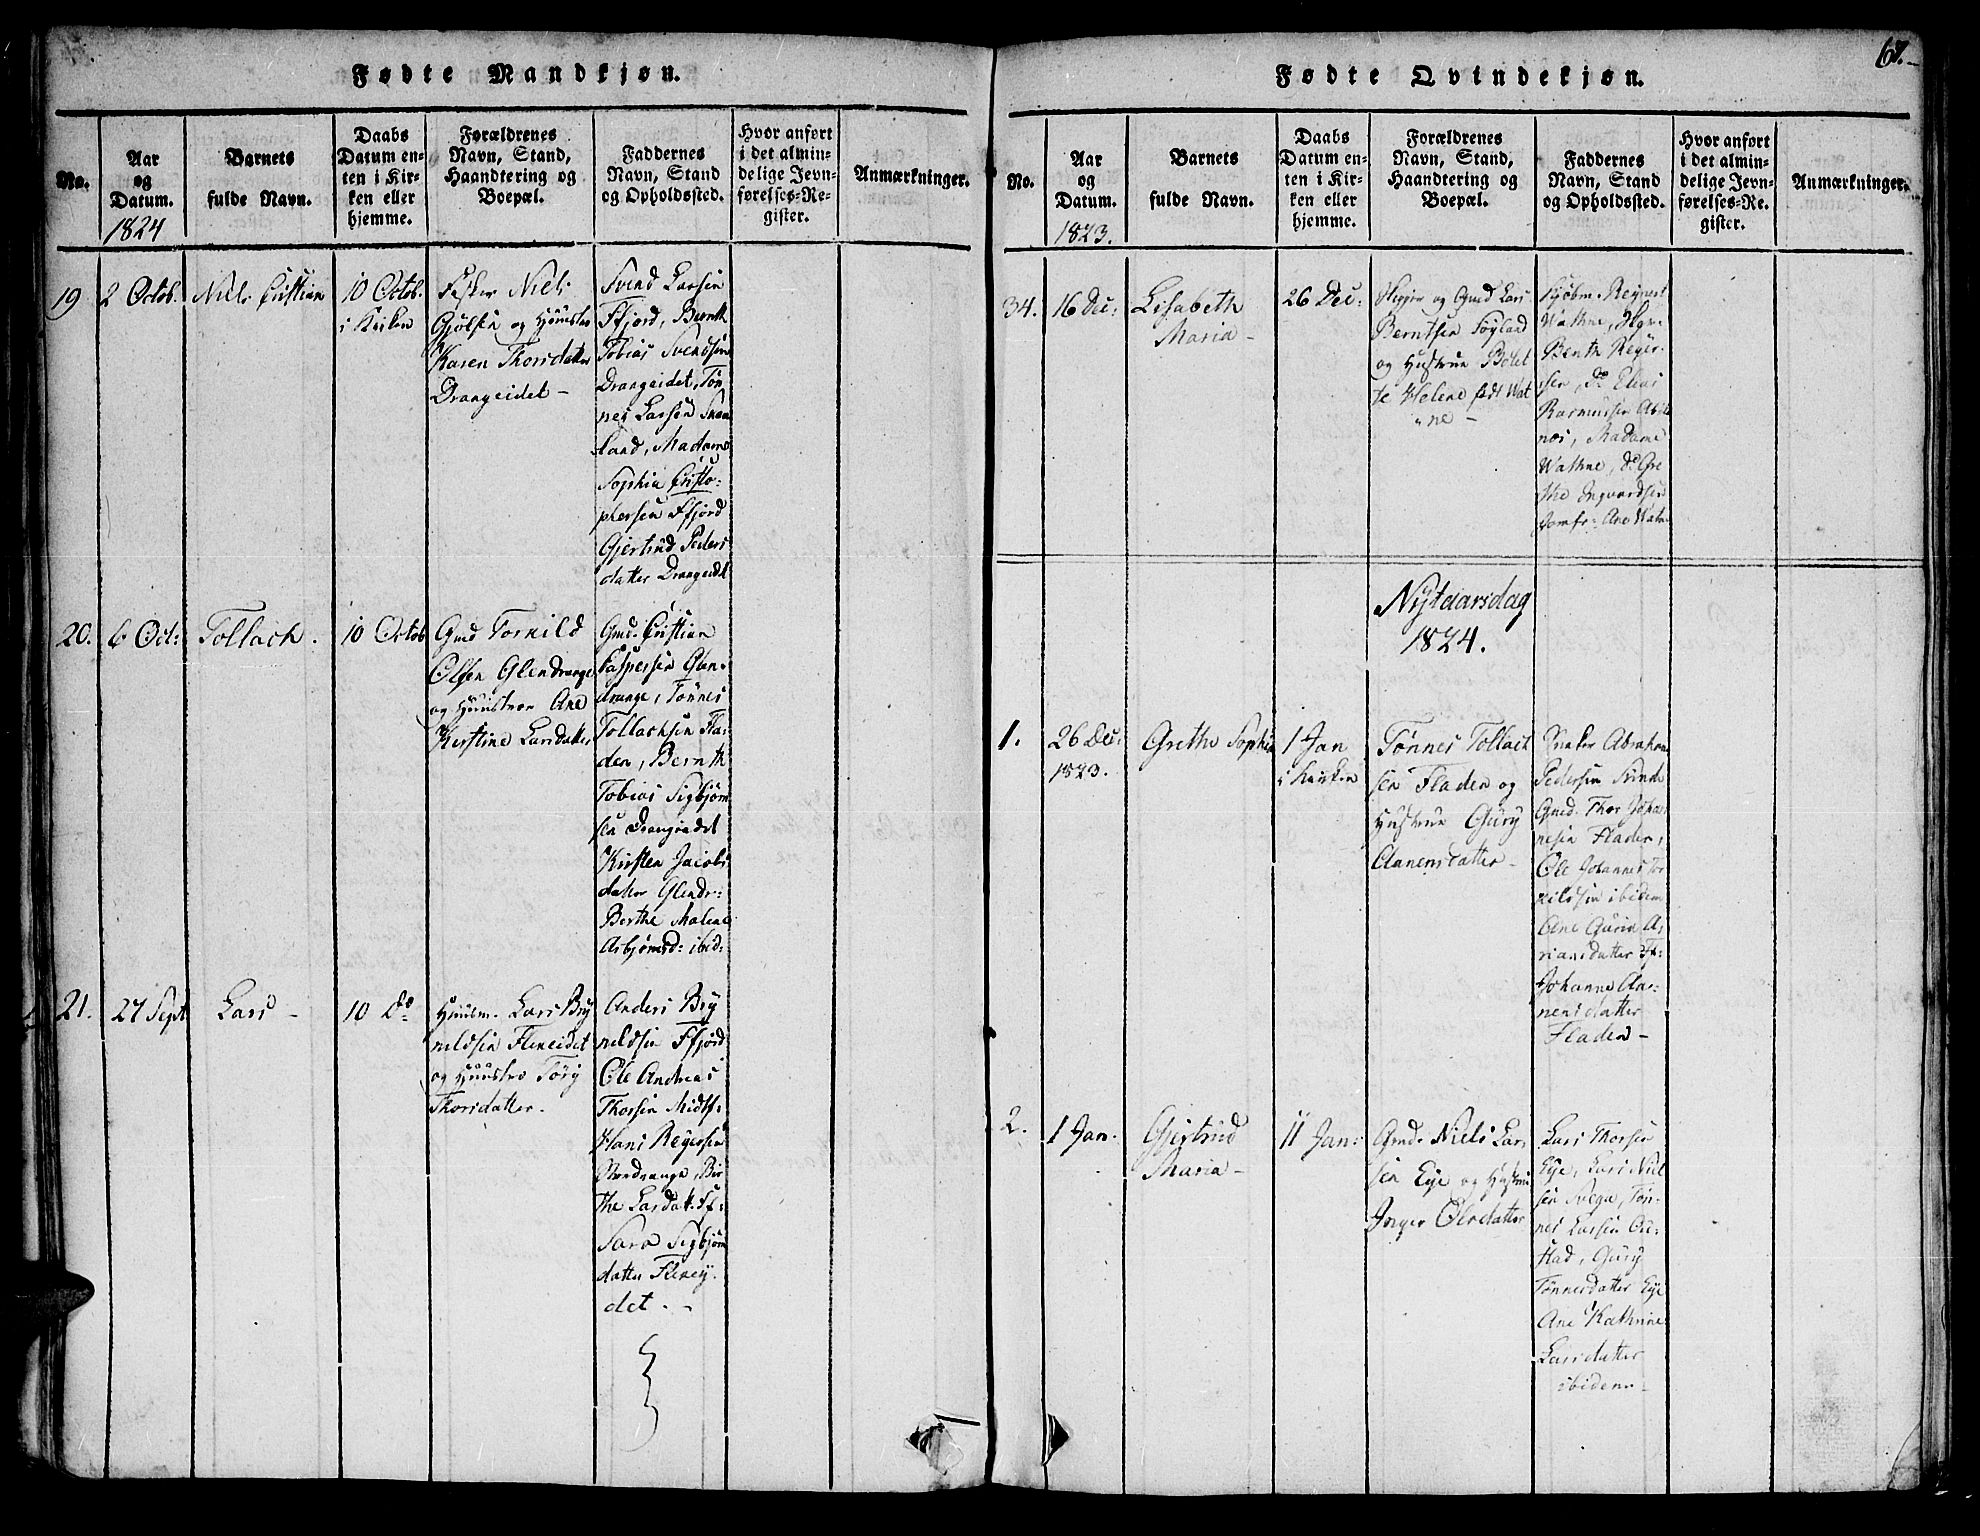 Fødte Mandkjøn.
No.
Aar
og
Datum.
1824
Barnets
fulde Navn.
Daabs
Datum en-
ten i Kir-
ken eller
hjemme.
Forældrenes
Navn, Stand,
Haandtering og
Boepæl.
Faddernes
Navn, Stand
og Opholdssted.
Hvor anført
i det almin-
delige Jevn-
førelses-Re-
gister.
Anmærkninger.
19
2 Octob.
Niels Cristian
10 Octob.
i Kirken
Niels
Gjølsen og
Karen Thorsdatter
Drangeidet -
Svend Larsen
Ffjord, Bernth
Tobias Svendsen
Drangeidet, Tøn-
nes Larsen
land, Madame
Sophia Cristo-
phersen Ffjord
Gjertrud Peders
datter Drangeidet
20.
6 Oct:
Tollach.
10 Octob
Gmd Tornild
Olsen Glendrange
og Huustroe Ane
Kirstine Larsdatter
Gmd. Cristian
Caspersen Glen-
drange, Tønnes
Tollachsen Fla-
den, Bernth
Tobias Sigbjørn
sen Drangeidet
Kirsten Jacobs
datter Glendr:
Berthe Malene
Asbjørnsd: ibid:
21.
27 Sept
Lars -
10 do
Huusm. Lars Bry
nildsen Fleneidet
og Huustro Tory
Thorsdatter.
Anders Bry
nildsen Ffjord
Ole Andreas
Thorsen Midtf:
Hans Reyersen
Nordrange, Bir
the Larsdat. Ff:
Sara Sigbjørn
datter Fleney-
det. -
Fødte Qvindekjøn.
67.-
No.
Aar
og
Datum.
1823.
Barnets
fulde Navn.
Daabs
Datum en-
ten i Kir-
ken eller
hjemme.
Forældrenes
Navn, Stand,
Haandtering og
Boepæl.
Faddernes
Navn, Stand
og Opholdssted.
Hvor anført
i det almin-
delige Jevn-
førelses-Re-
gister.
Anmærkninger.
34.
16 Dec:
Lisabeth
Maria -
26 Dec:
og Gmd Lars
Berntsen Føyland
og Hustrue Bolet
te Helene født Wat
ne -
Kjøbm. Reynert
Wathne,
Benth Reyer-
sen, do Elias
Rasmussen
Madame
Wathne, do Gre
the Ingvardsen
Jomfr: Ane Watne
Nytaarsdag
1824.
1.
26 Dec:
1823.
Grethe Sophia
1 Jan
i Kirken
Tønnes Tollach
sen Fladen og
Hustrue Gury
Aanensdatter -
Abraham
Pedersen
Gmd. Thor Johan-
nesen Fladen,
Ole Johannes Tor
nildsen ibidem
Ane Guria A,
riansdatter Ff:
Johanne Aa-
nensdatter
Fladen -
2.
1 Jan.
Gjertrud
Maria -
11 Jan:
Gmd. Niels Lar-
sen Eye og Hustrue
Inger Olsdatter
Lars Thorsen
Eye, Lars Niel
sen Svega, Tøn-
nes Larsen
stad, Gury
Tønnesdatter Eye
Ane Kathrine
Larsdatter
ibidem -